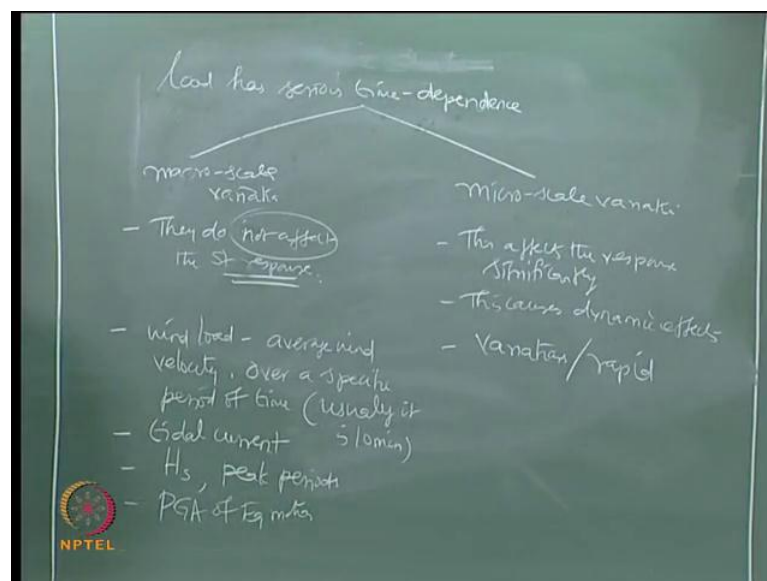 load has serious time-dependence
macro-scale
They do not affect
the St response.
- wind load - average wind
velocity, over a specific
period of time (usually it
is 10min)
- tidal current
- Hs, peak periods
- PGA of Eq motion
micro-scale
- This affects the response
significantly
- This causes dynamic effects
- variations/rapid
NPTEL